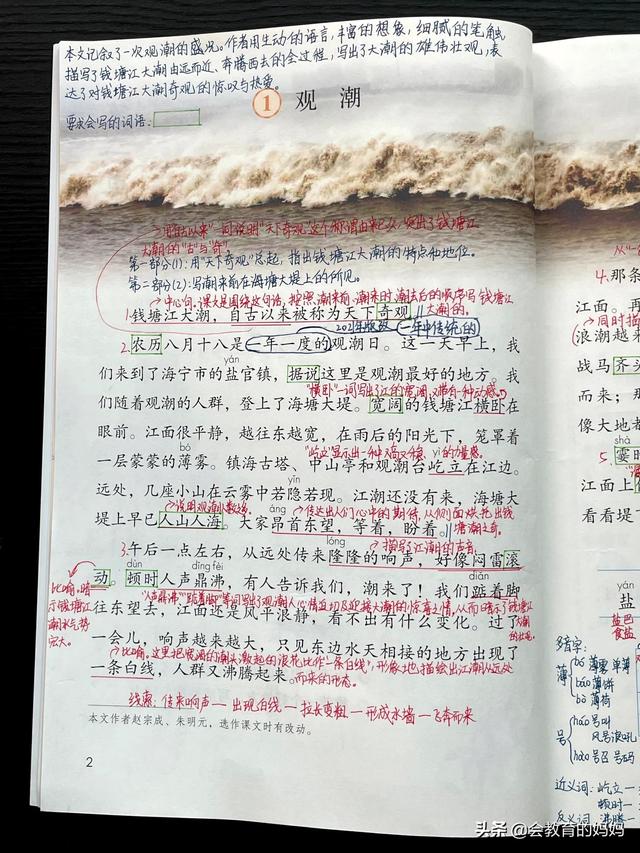 本文记叙了一次观潮的盛况。作者用生动的语言,丰富的想象,细腻的笔触,
描写了钱塘江大潮由远而近、奔腾西去的全过程,写出了大潮的雄伟壮观,表
达了对钱塘江大潮奇观的惊叹与热爱。
1 观潮
要求会写的词语:
用"自古以来"一词说明"天下奇观"这个称谓由来已久,突出了钱塘江
大潮的"古"与"奇"。
第一部分(1):用"天下奇观"总起,指出钱塘江大潮的特点和地位。
第二部分(2):写潮来前在海塘大堤上的所见。
中心句,课文是围绕这句话,按照潮来前、潮来时、潮去后的顺序写钱塘江
大潮的。
1.钱塘江大潮,自古以来被称为天下奇观。
一年中传统的
2.农历八月十八是一年一度的观潮日。这一天早上,我
yán
们来到了海宁市的盐官镇,据说这里是观潮最好的地方。我
"横卧"一词写出了江的宽阔,又带有一种动感。
们随着观潮的人群,登上了海塘大堤。宽阔的钱塘江横卧在
眼前。江面很平静,越往东越宽,在雨后的阳光下,笼罩着
bó
"屹立"显示出一种又高又稳、
yì
的力量感。
一层蒙蒙的薄雾。镇海古塔、中山亭和观潮台屹立在江边。
yǐn
远处,几座小山在云雾中若隐若现。江潮还没有来,海塘大
说明观潮人数多。
áng
传达出人们心中的期待,从侧面烘托出钱
塘潮之奇。
堤上早已人山人海。大家昂首东望,等着,盼着。
lóng
描写了江潮的声音
3.午后一点左右,从远处传来隆隆的响声,好像闷雷滚
dùn
dǐng fèi
diǎn
动。顿时人声鼎沸,有人告诉我们,潮来了!我们踮着脚
比喻,暗
示钱塘江
潮水气势
宏大。
往东望去,江面还是风平浪静,看不出有什么变化。过了
一会儿,响声越来越大,只见东边水天相接的地方出现了
比喻,这里把宽阔的潮头激起的浪花比作"一条白线",形象地描绘出江潮从远处
而来的形态。
一条白线,人群又沸腾起来。
线索:传来响声—出现白线—拉长变粗—形成水墙—飞奔而来
本文作者赵宗成、朱明元,选作课文时有改动。
2
从"一
4.那条
江面。再
同时描
浪越来
战马齐头
而来;那
像大地都
shà
5.霎时
江面上
看看堤下
盐
盐巴
食盐
多音字:
薄
bó 薄雾 单薄
báo 薄饼
bò 薄荷
号
háo 号叫
风号浪吼
hào 号召 号码
近义词:屹立—
顿时—
反义词:沸腾—
头条 @会教育的妈妈